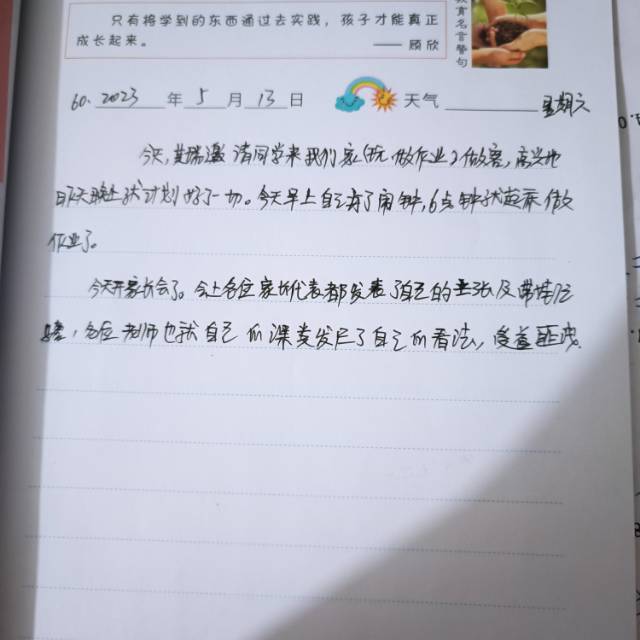 只有将学到的东西通过去实践，孩子才能真正
成长起来。
—— 顾欣
教育名言警句
60. 2023 年 5 月 13 日 天气 星期六
今天, 瑞 请同学来我们家 做作业 做客, 高兴地
昨天晚上就计划好了一切。今天早上自己有了闹钟, 6点钟就起床做
作业了。
今天开家长会了。会上各位家长代表都发表了自己的主张及带娃经
验, 各位老师也就自己的课类发表了自己的看法, 受益匪浅